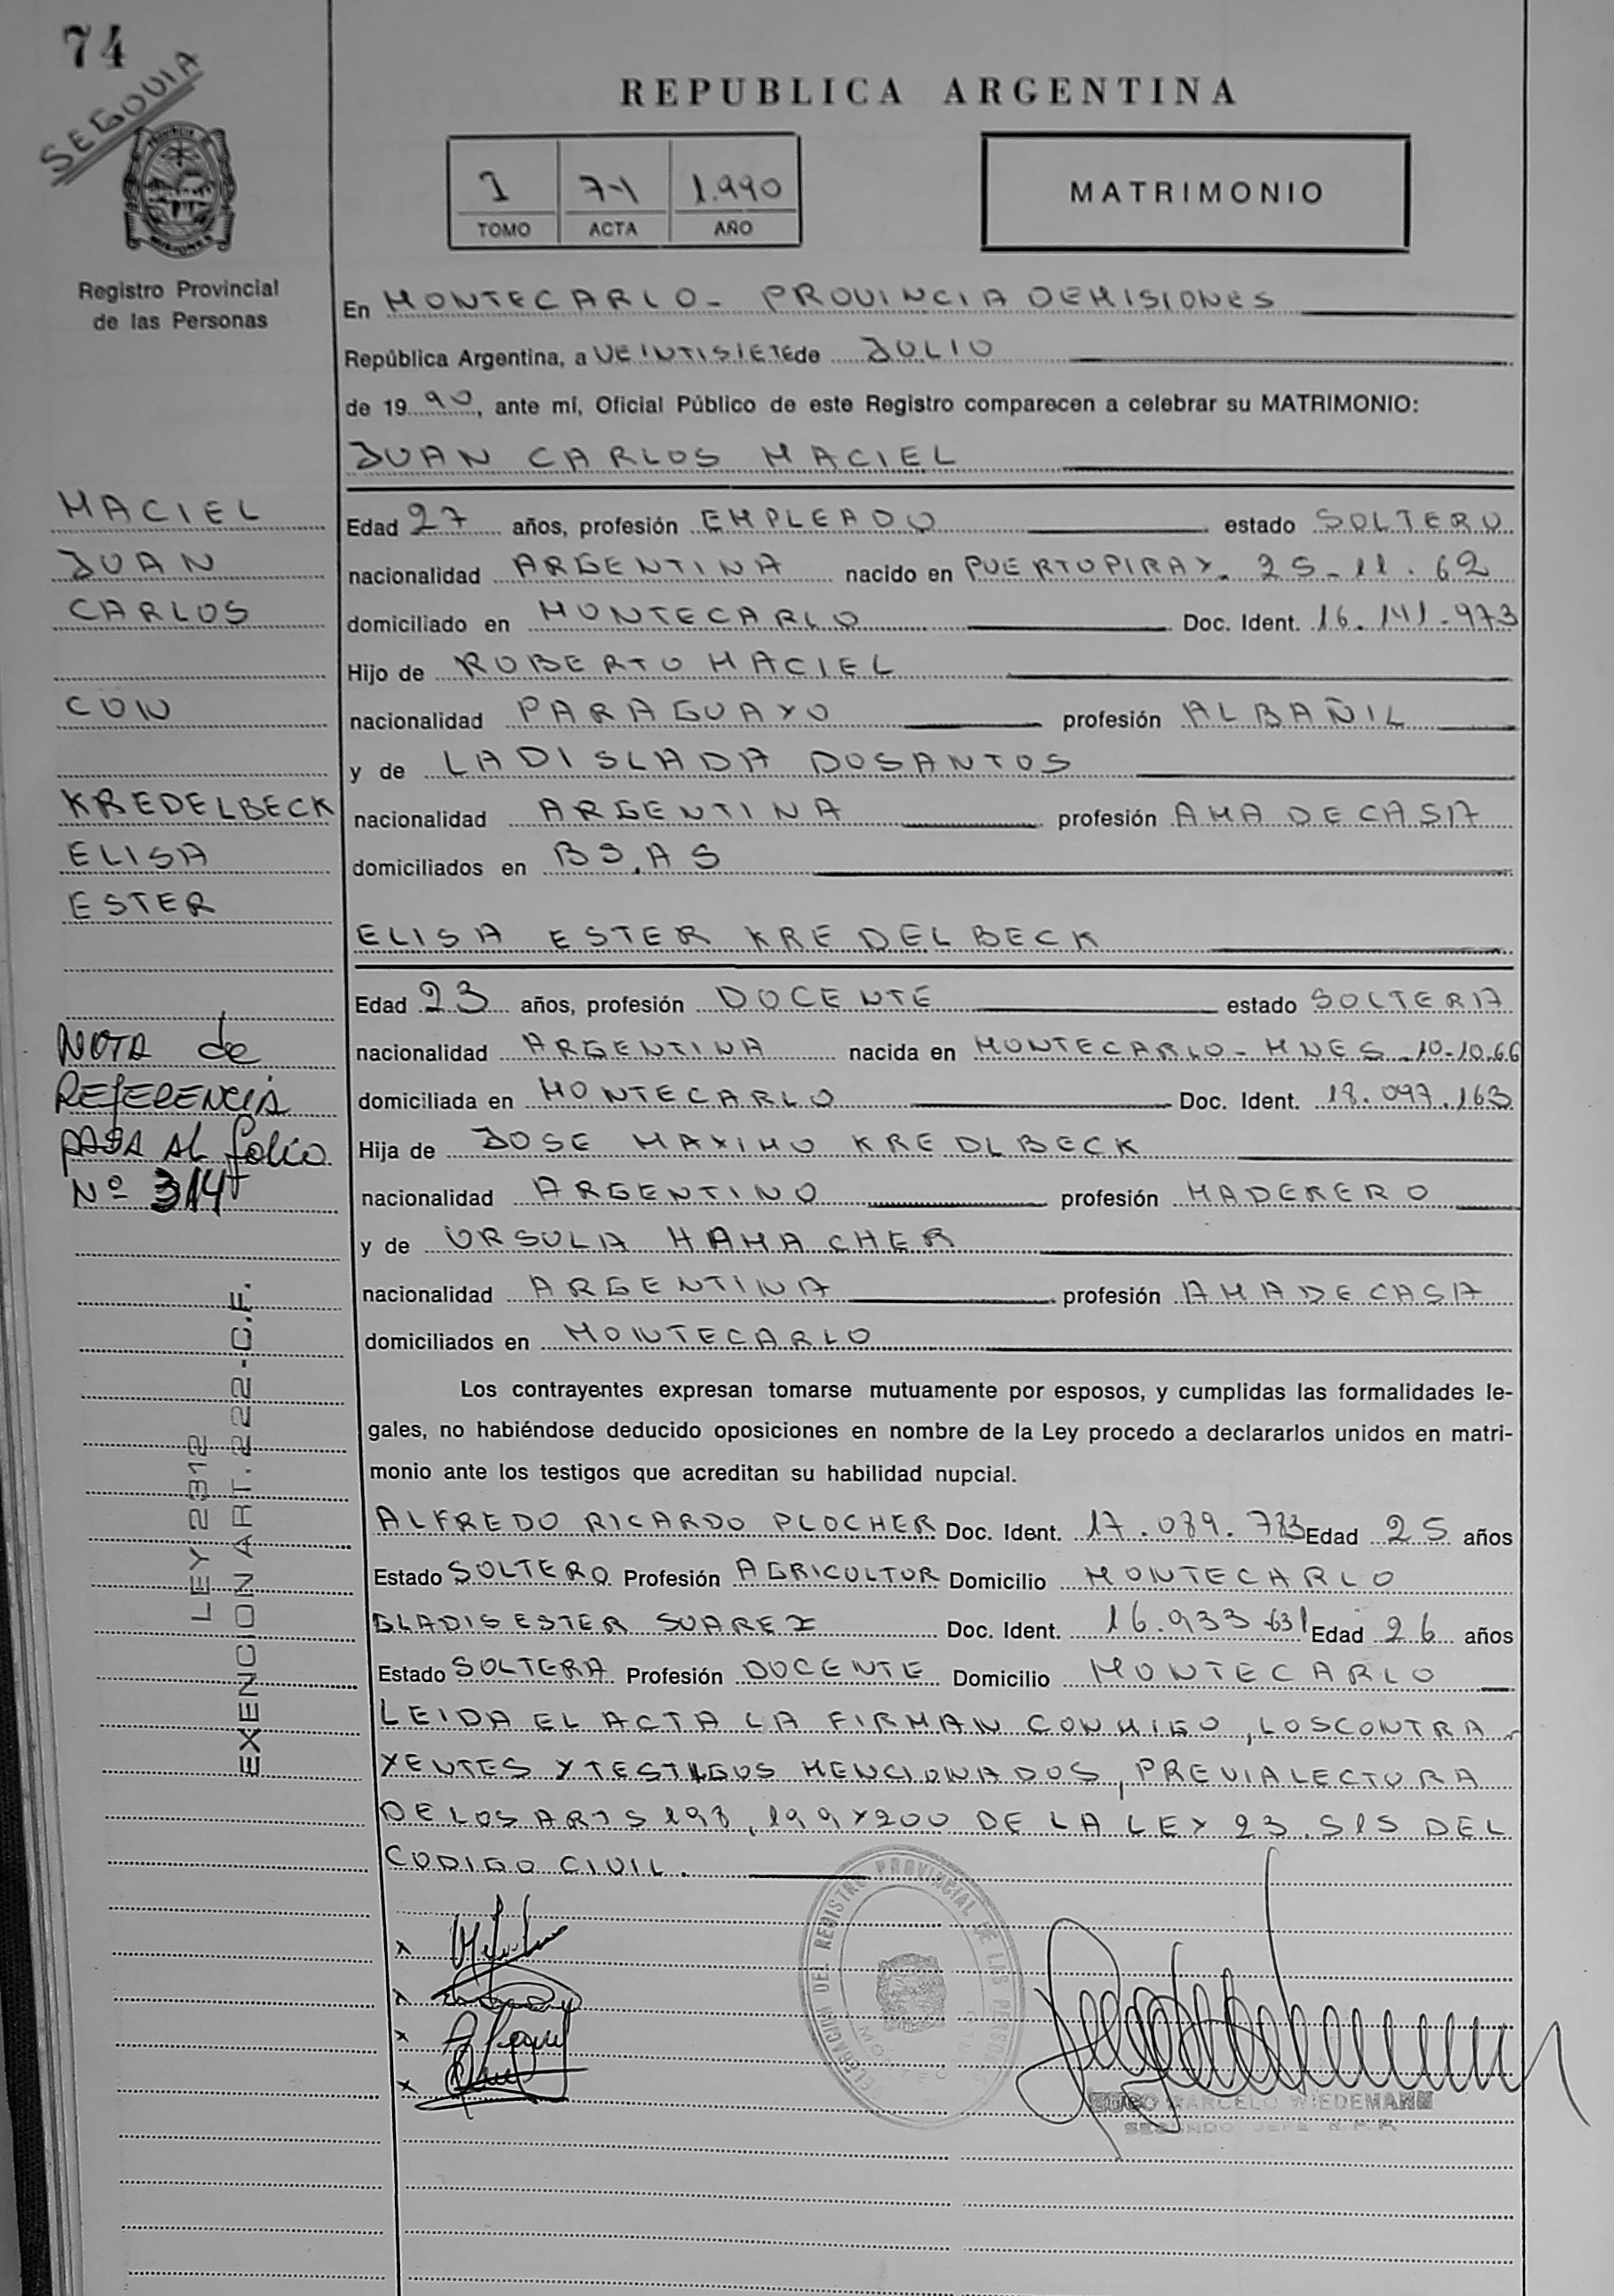 74
SEGOVIA
REPUBLICA ARGENTINA
I 74 1.990
TOMO ACTA AÑO
MATRIMONIO
Registro Provincial
de las Personas
En MONTECARLO - PROVINCIA DE MISIONES
República Argentina, a VEINTISIETE de JULIO
de 19 90, ante mí, Oficial Público de este Registro comparecen a celebrar su MATRIMONIO:
JUAN CARLOS MACIEL
MACIEL
JUAN
CARLOS
CON
KREDELBECK
ELISA
ESTER
NOTA de
REFERENCIA
PASA AL folio
Nº 314
LEY 2312
EXENCION ART. 222 - C.F.
Edad 27 años, profesión EMPLEADO estado SOLTERO
nacionalidad ARGENTINA nacido en PUERTO PIRAY - 25-11.62
domiciliado en MONTECARLO Doc. Ident. 16.141.973
Hijo de ROBERTO MACIEL
nacionalidad PARAGUAYO profesión ALBAÑIL
y de LADISLADA DOSANTOS
nacionalidad ARGENTINA profesión AMA DE CASA
domiciliados en BS.AS
ELISA ESTER KREDELBECK
Edad 23 años, profesión DOCENTE estado SOLTERA
nacionalidad ARGENTINA nacida en MONTECARLO - MNES - 10-10.66
domiciliada en MONTECARLO Doc. Ident. 18.097.163
Hija de JOSE MAXIMO KREDLBECK
nacionalidad ARGENTINO profesión MADERERO
y de URSULA HAMACHER
nacionalidad ARGENTINA profesión AMA DE CASA
domiciliados en MONTECARLO
Los contrayentes expresan tomarse mutuamente por esposos, y cumplidas las formalidades le-
gales, no habiéndose deducido oposiciones en nombre de la Ley procedo a declararlos unidos en matri-
monio ante los testigos que acreditan su habilidad nupcial.
ALFREDO RICARDO PLOCHER Doc. Ident. 17.039.783 Edad 25 años
Estado SOLTERO Profesión AGRICULTOR Domicilio MONTECARLO
GLADIS ESTER SUAREZ Doc. Ident. 16.933.631 Edad 26 años
Estado SOLTERA Profesión DOCENTE Domicilio MONTECARLO
LEIDA EL ACTA LA FIRMAN CONMIGO, LOS CONTRA-
YENTES Y TESTIGOS MENCIONADOS, PREVIA LECTURA
DE LOS ARTS 198, 199 Y 200 DE LA LEY 23.515 DEL
CODIGO CIVIL.
DELEGACION DEL REGISTRO PROVINCIAL DE LAS PERSONAS
MONTECARLO
HUGO MARCELO WIEDEMANN
SEGUNDO JEFE R.P.P.